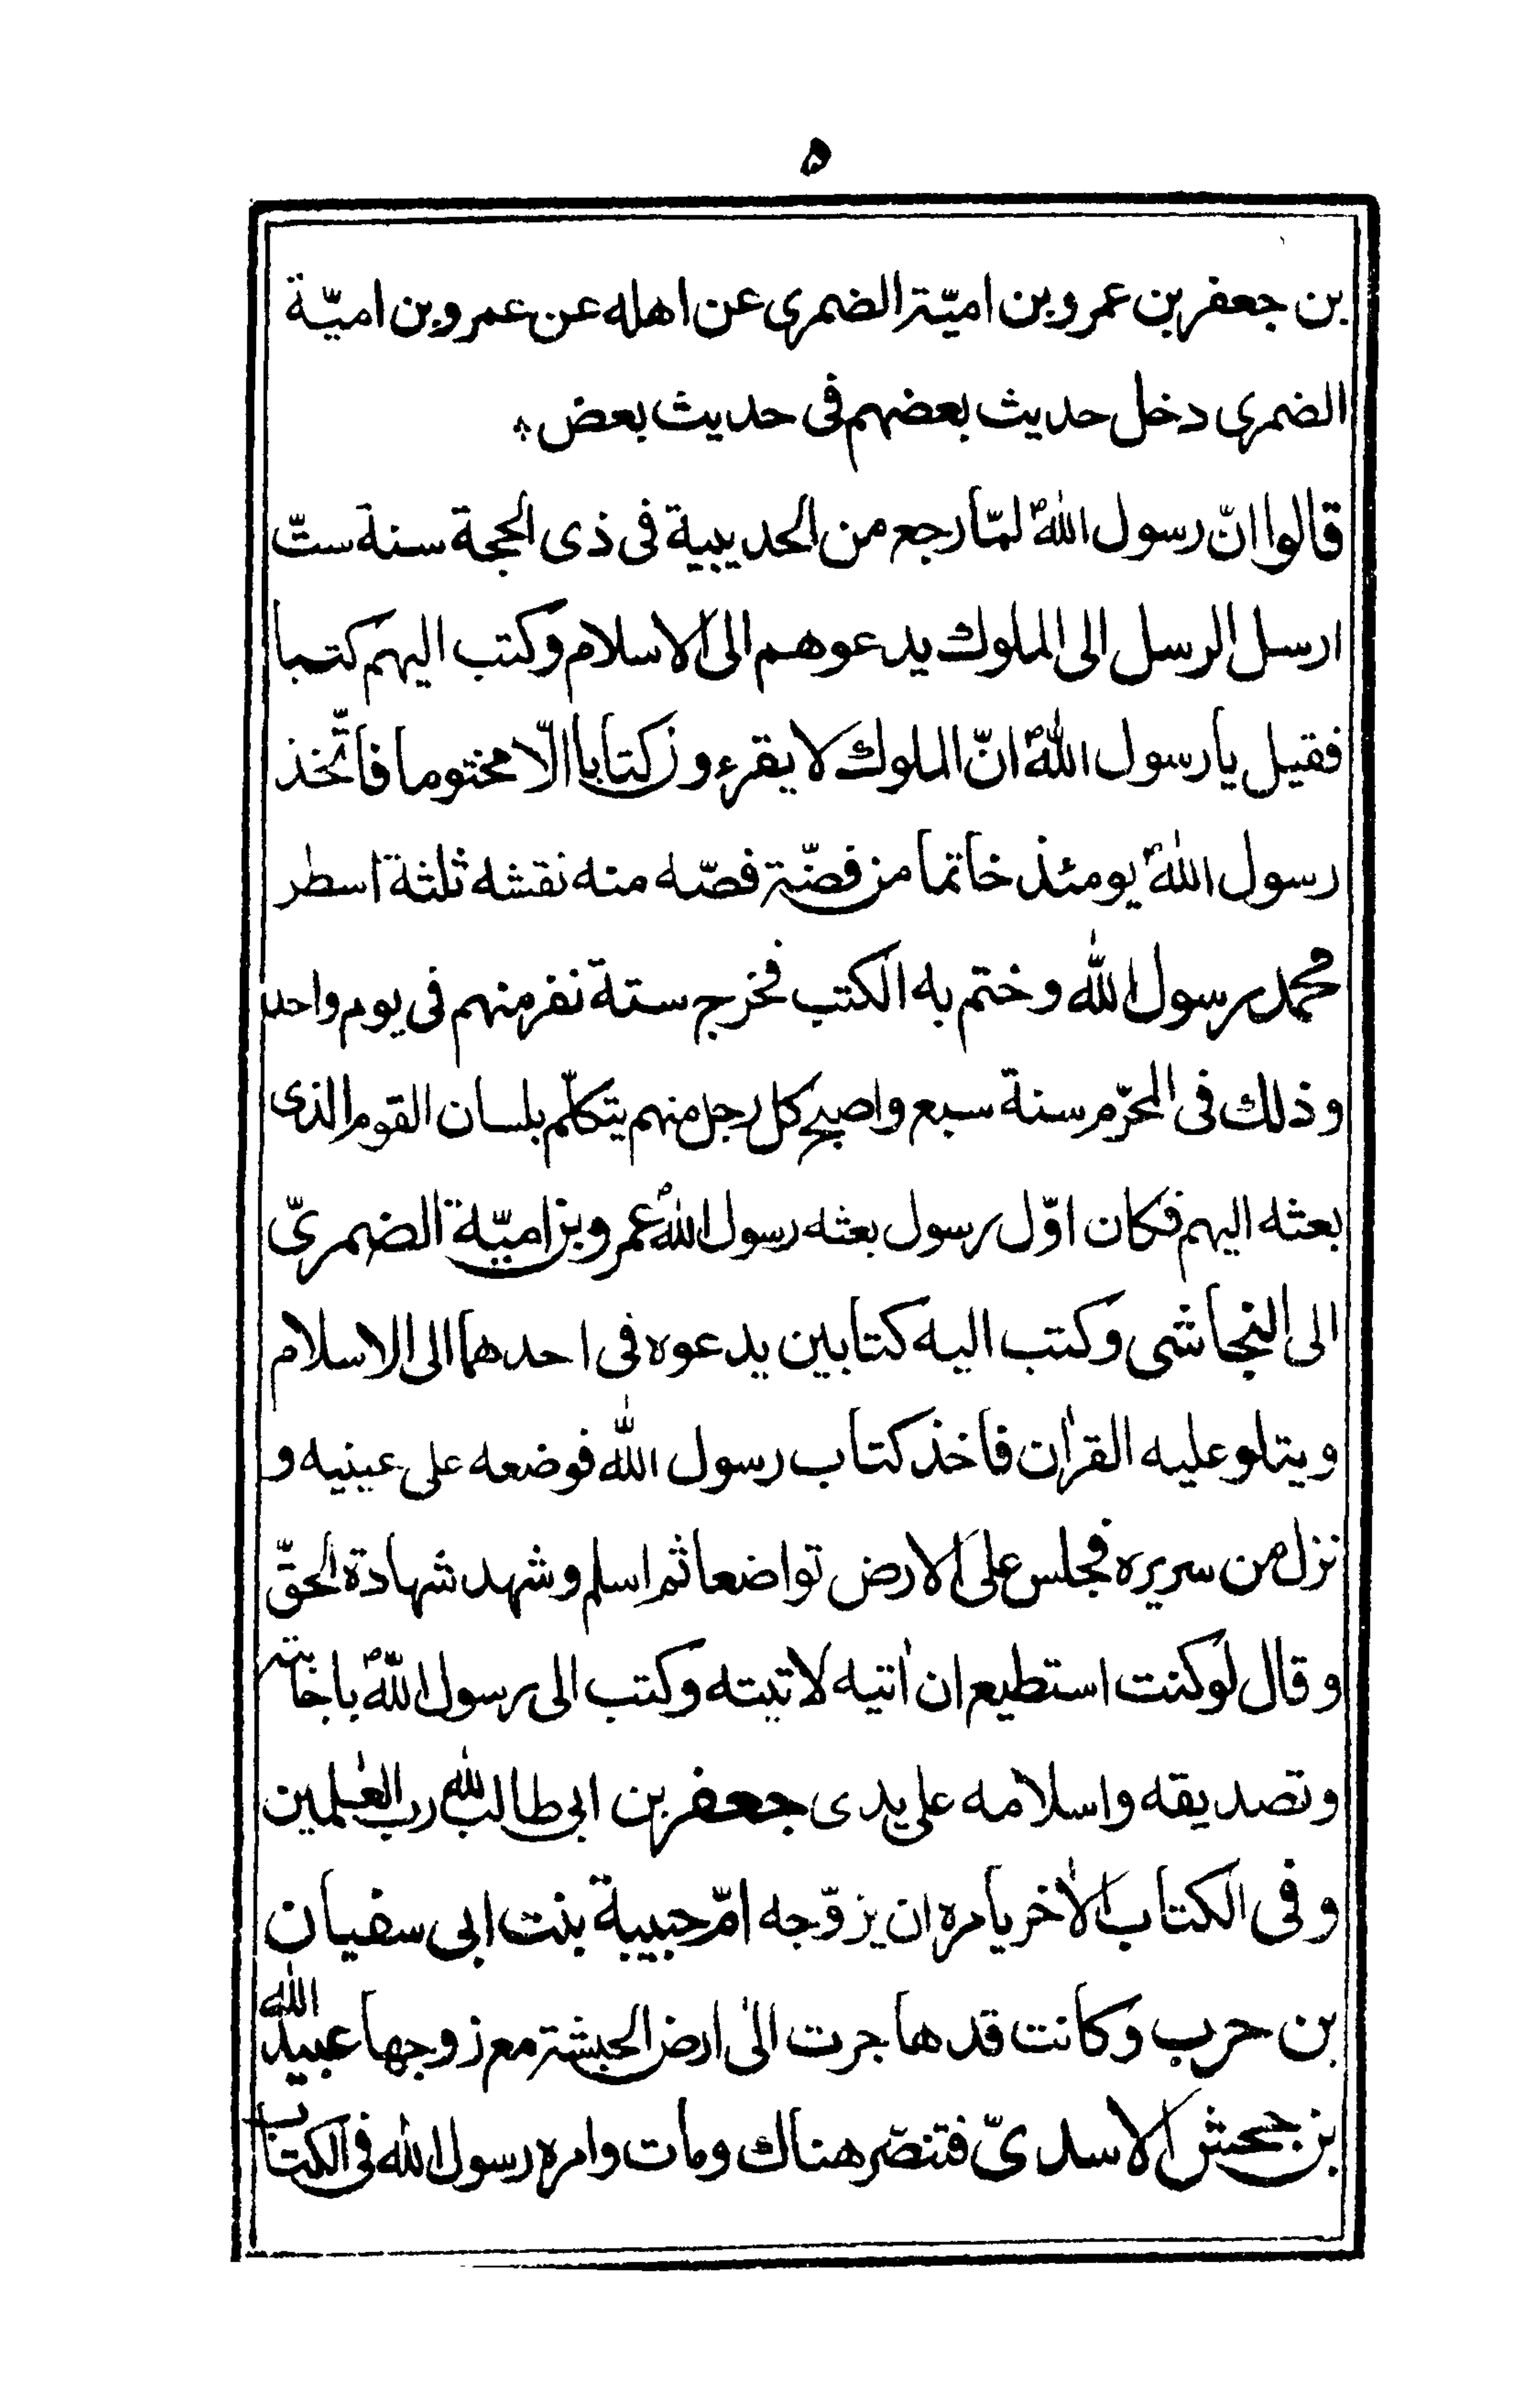 ٥
بن جعفر بن عمرو بن اميّة الضمرى عن اهله عن عمرو بن اميّة
الضمرى دخل حديث بعضهم فى حديث بعض
قالوا انّ رسول اللهؐ لمّا رجع من الحديبية فى ذى الحجة سنة ستّ
ارسل الرسل الى الملوك يدعوهم الى الاسلام وكتب اليهم كتبا
فقيل يا رسول اللهؐ انّ الملوك لا يقرءون كتابا الّا مختوما فاتّخذ
رسول اللهؐ يومئذ خاتما من فضّة فصّه منه نقشه ثلثة اسطر
محمد رسول الله وختم به الكتب فخرج ستة نفر منهم فى يوم واحد
وذلك فى المحرّم سنة سبع واصبح كل رجل منهم يتكلّم بلسان القوم الذى
بعثه اليهم فكان اوّل رسول بعثه رسول اللهؐ عمرو بن اميّة الضمرىّ
الى النجاشى وكتب اليه كتابين يدعوه فى احدهما الى الاسلام
ويتلو عليه القرٰان فاخذ كتاب رسول الله فوضعه على عينيه و
نزل من سريره فجلس على الارض تواضعا ثم اسلم وشهد شهادة الحقّ
وقال لو كنت استطيع ان اٰتيه لاتيته وكتب الى رسول اللهؐ باجابته
وتصديقه واسلامه على يدى جعفر بن ابى طالب لله رب العٰلمين
وفى الكتاب الاٰخر يامره ان يزوّجه امّ حبيبة بنت ابى سفيان
بن حرب وكانت قد هاجرت الى ارض الحبشة مع زوجها عبيد الله
بن جحش الاسدىّ فتنصّر هناك ومات وامره رسول الله فى الكتاب